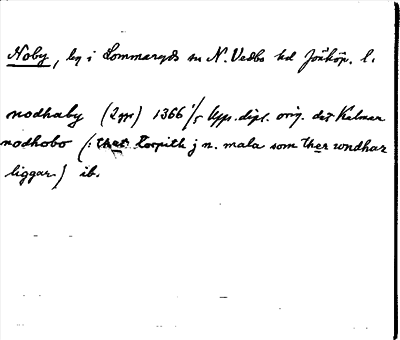 Noby, by i Lommaryds sn N. Vedbo hd Jönköp. l.
nodhaby (2 ggr) 1366 1/5 Upp. dipl. orig. dat Kalmar
nodhobo (: thet torpith j n. mala som ther wndhar
liggar.) ib.